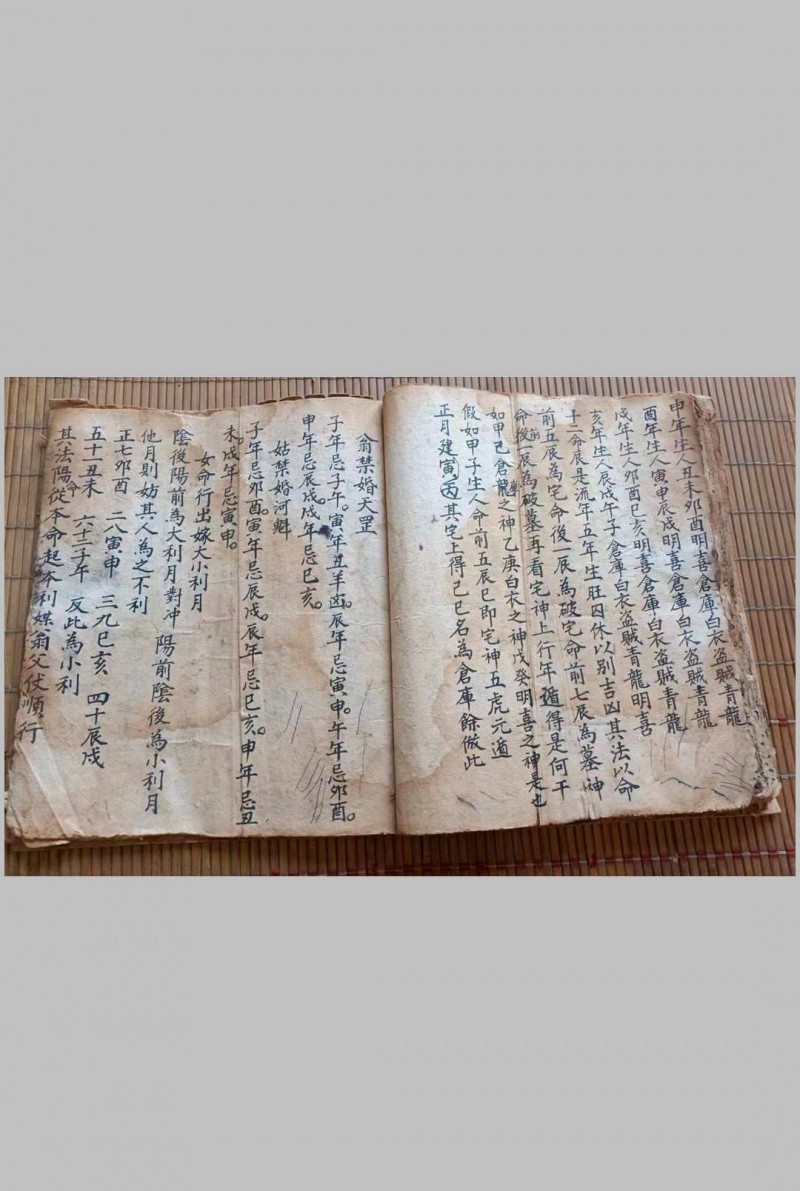 申年生人丑未卯酉明喜倉庫白衣盗賊青龍
酉年生人寅申辰戌明喜倉庫白衣盗賊青龍
戌年生人卯酉巳亥明喜倉庫白衣盗賊青龍
亥年生人辰戌午子倉庫白衣盗賊青龍明喜
十二命辰是流年五年生旺囚休以别吉凶其法以命
前五辰為宅命後一辰為破宅命前七辰為墓神
命後一辰為破墓再看宅神上行年遁得是何干
如甲己倉龍之神乙庚白衣之神戊癸明喜之神是也
假如甲子生人命前五辰巳即宅神五虎元遁
正月建寅丙其宅上得己巳名為倉庫餘倣此
翁禁婚天罡
子年忌子午。寅年丑羊凶辰年忌寅申午年忌卯酉。
申年忌辰戌。戌年忌巳亥。
姑禁婚河魁
子年忌卯酉寅年忌辰戌辰年忌巳亥。申年忌丑
未。戌年忌寅申。
女命行出嫁大小利月
陰後陽前為大利月對冲 陽前陰後為小利月
他月則妨其人為之不利
正七卯酉 二八寅申 三九巳亥 四十辰戌
五十一丑未 六十二子午 反此為小利
其法陽命從本命起本利媒翁父仗順行